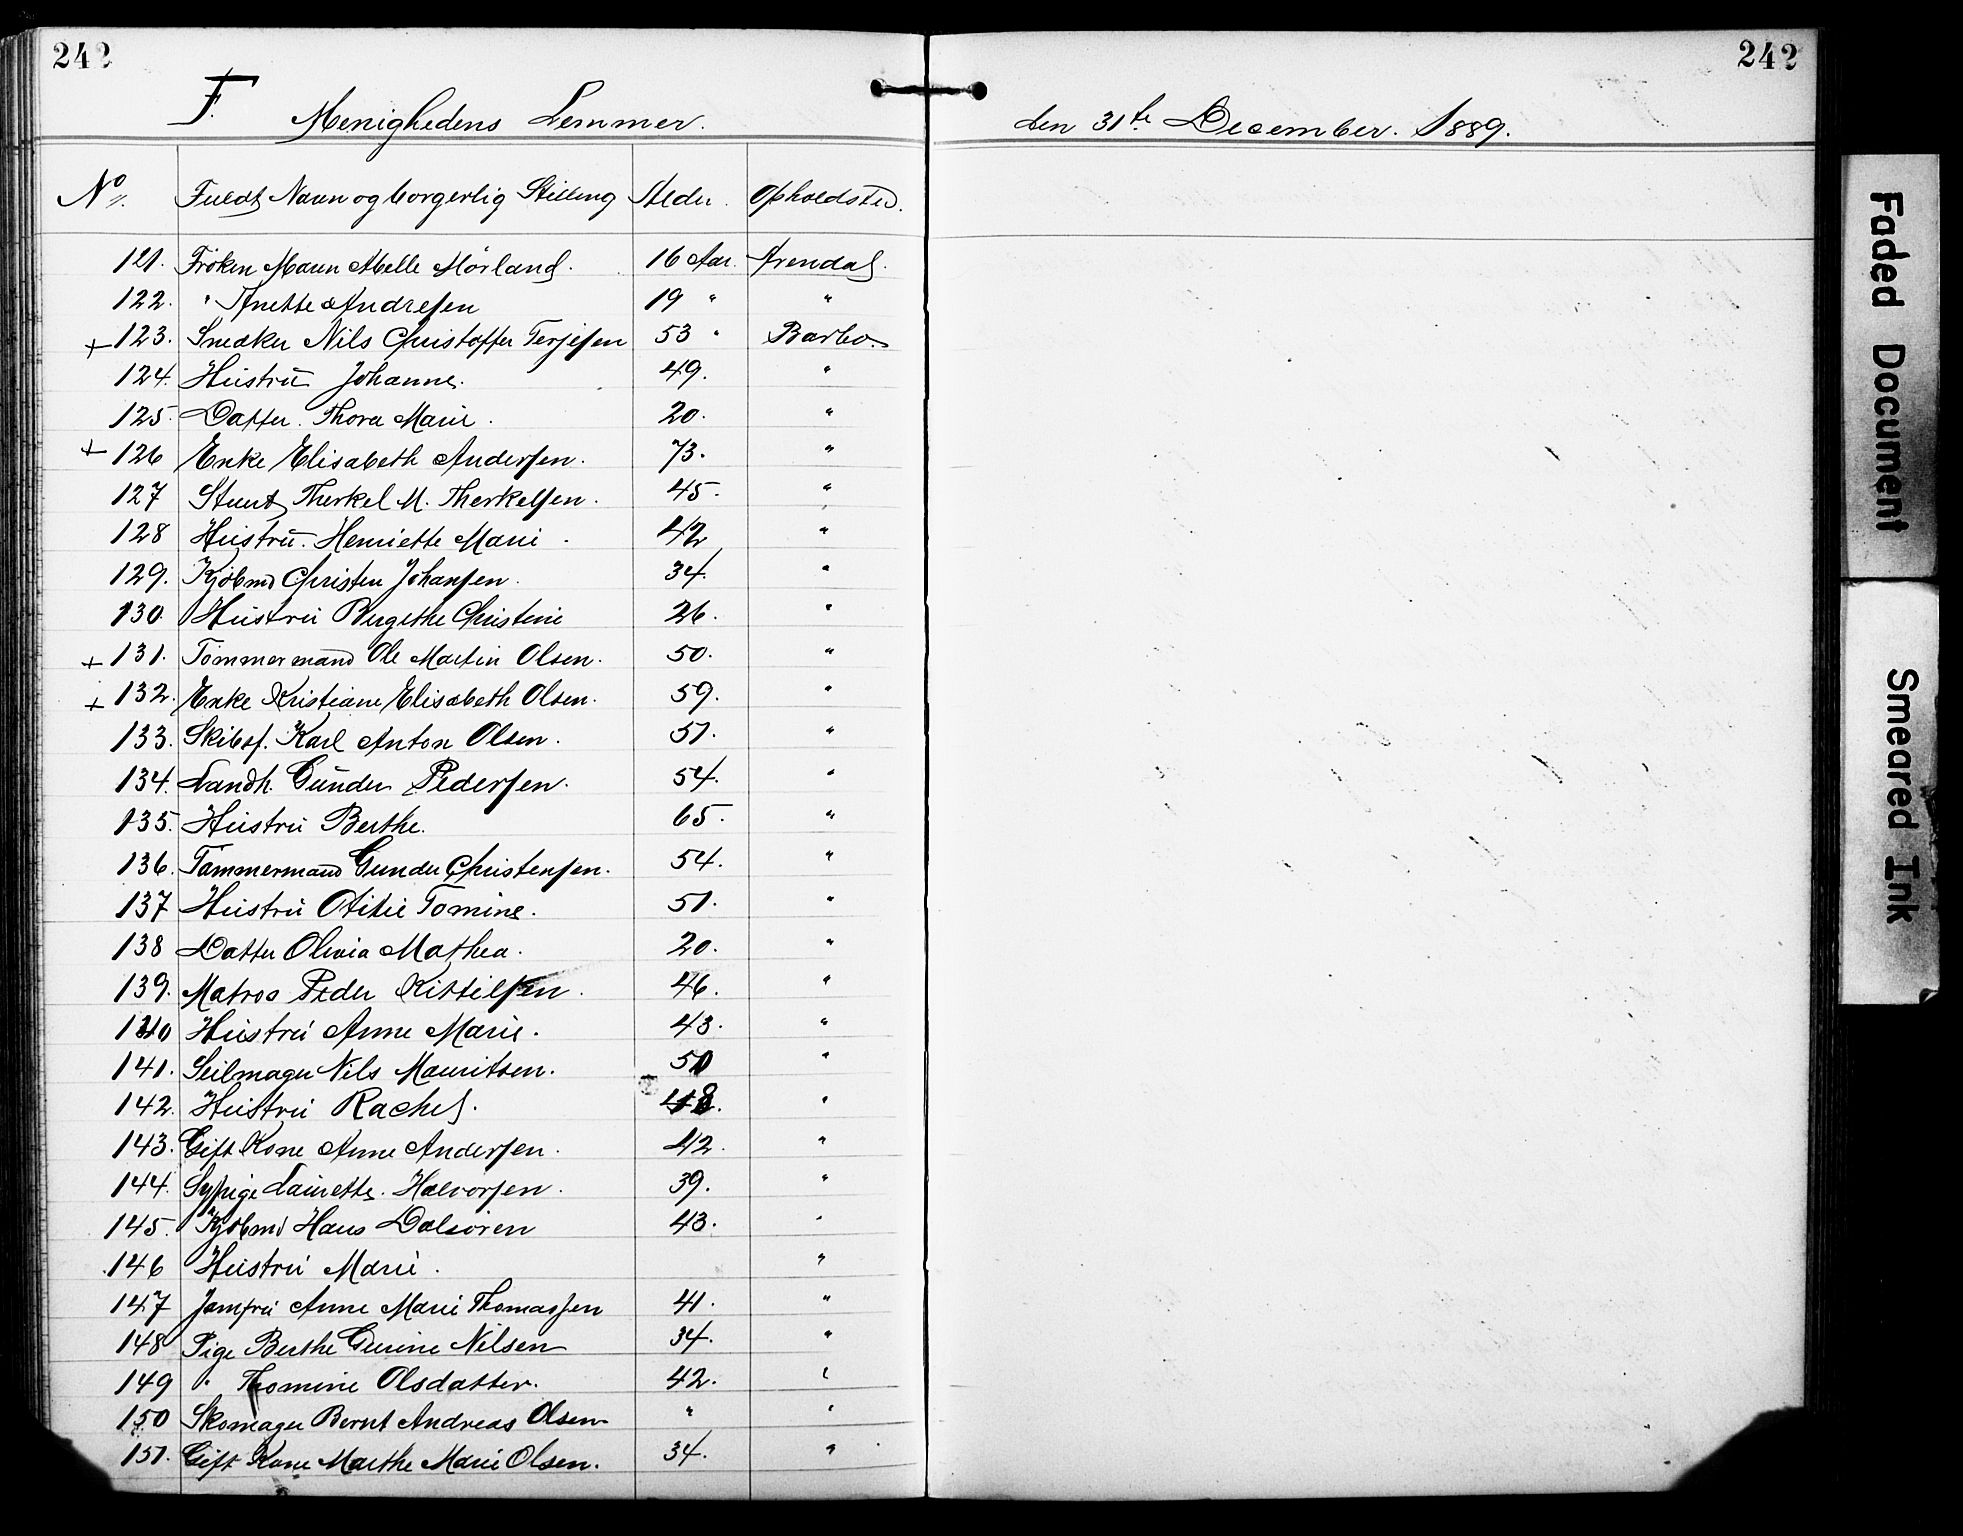 242 242
F. Menighedens Lemmer. den 31te December. 1889.
No Fuldt Navn og borgerlig Stilling Alder. Opholdsted.
121. Fröken Maren Abelle Mörland. 16 Aar. Arendal.
122. " Anette Andresen 19 " "
+ 123. Snedker Nils Christoffer Terjesen 53 " Barbo.
124. Hustru Johanne. 49. "
125. Datter. Thora Marie. 20. "
+ 126 Enke Elisabeth Andersen. 73. "
127 Stuert Therkel M. Therkelsen. 45. "
128 Hustru. Henriette Marie. 42 "
129. Kjöbmd Christen Johansen. 34. "
130. Hustru Bergethe Christine 26. "
+ 131. Tömmermand Ole Martin Olsen. 50. "
+ 132. Enke Kristiane Elisabeth Olsen. 59. "
133. Skibsf. Karl Anton Olsen. 51. "
134. Landh. Gunder Pedersen. 54. "
135. Hustru Berthe. 65. "
136. Tømmermand Gunder Christensen. 54. "
137 Hustru Otilie Tomine. 51. "
138 Datter Olivia Mathea. 20. "
139. Matros Peder Kittilsen. 46. "
140 Hustru Anne Marie. 43. "
141. Seilmager Nils Mauritsen. 50 "
142. Hustru Rachel. 48. "
143. Gift Kone Anne Andersen. 42. "
144. Sypige Laurette. Halvorsen. 39. "
145. Kjöbmd Hans Dalsören 43. "
146 Hustru Marie. "
147 Jomfru Anne Marie Thomassen 41. "
148 Pige Berthe Gurine Nilsen 34. "
149 " Thomine Olsdatter. 42. "
150 Skomager Bernt Andreas Olsen " "
151. Gift Kone Marthe Marie Olsen. 34. "
Faded Document
Smeared Ink